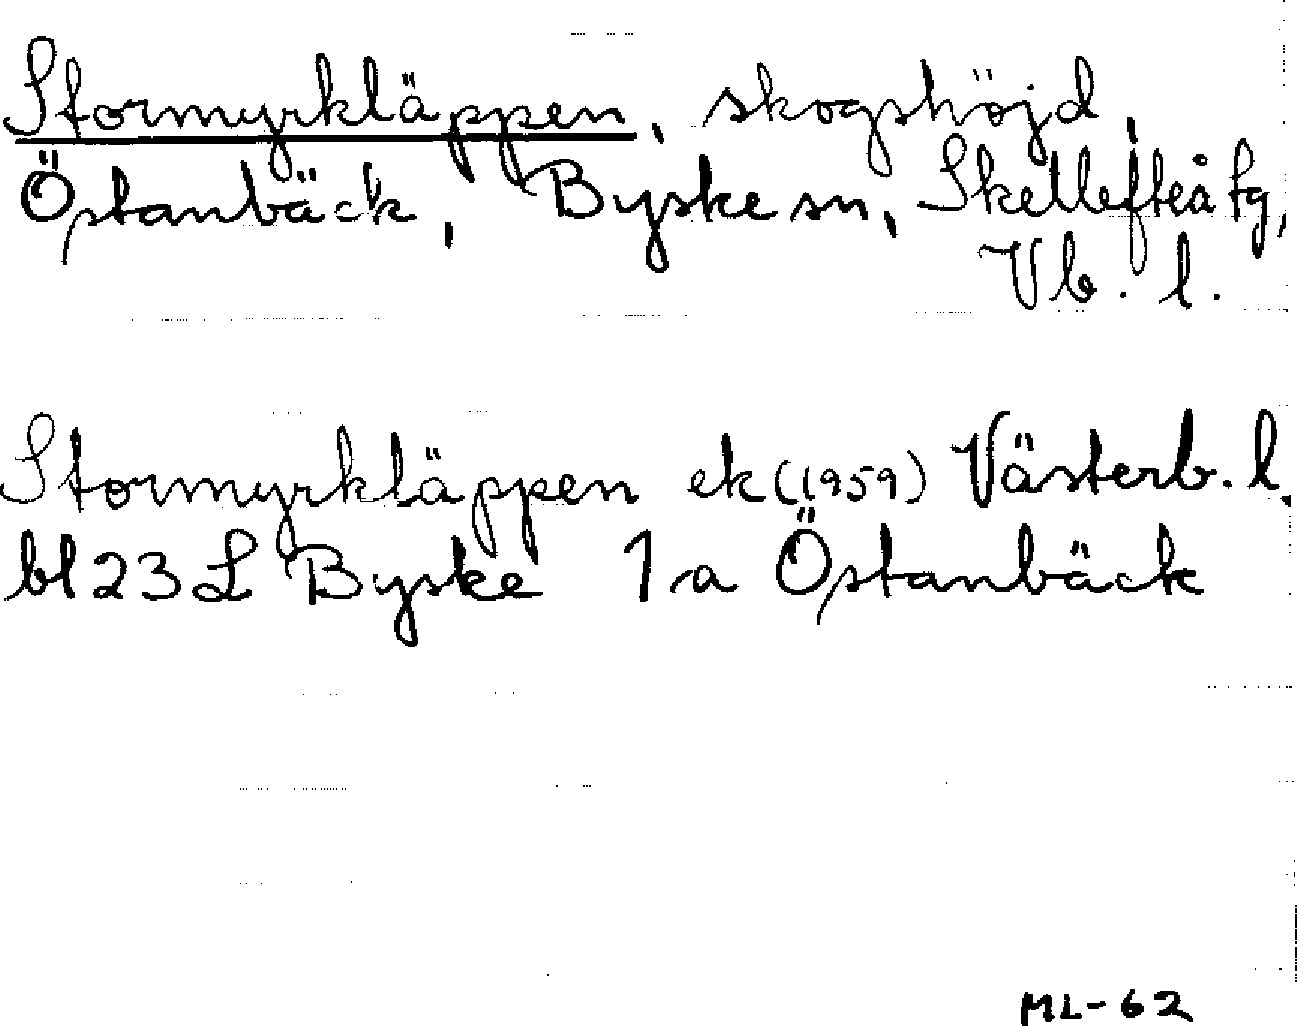 Stormyrkläppen, skogshöjd,
Östanbäck, Byske sn, Skellefteå tg,
Vb. l.
Stormyrkläppen ek (1959) Västerb. l.
bl 23 L Byske 1 a Östanbäck
ML-62